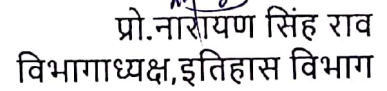 प्रो.नारायण सिंह राव
विभागाध्यक्ष,इतिहास विभाग